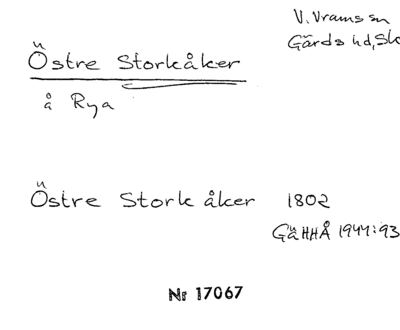 V. Vrams sn
Gärds hd, Sk
Östre Storkåker
å Rya
Östre Storkåker 1802
GäHHÅ 1944:93
Nr 17067